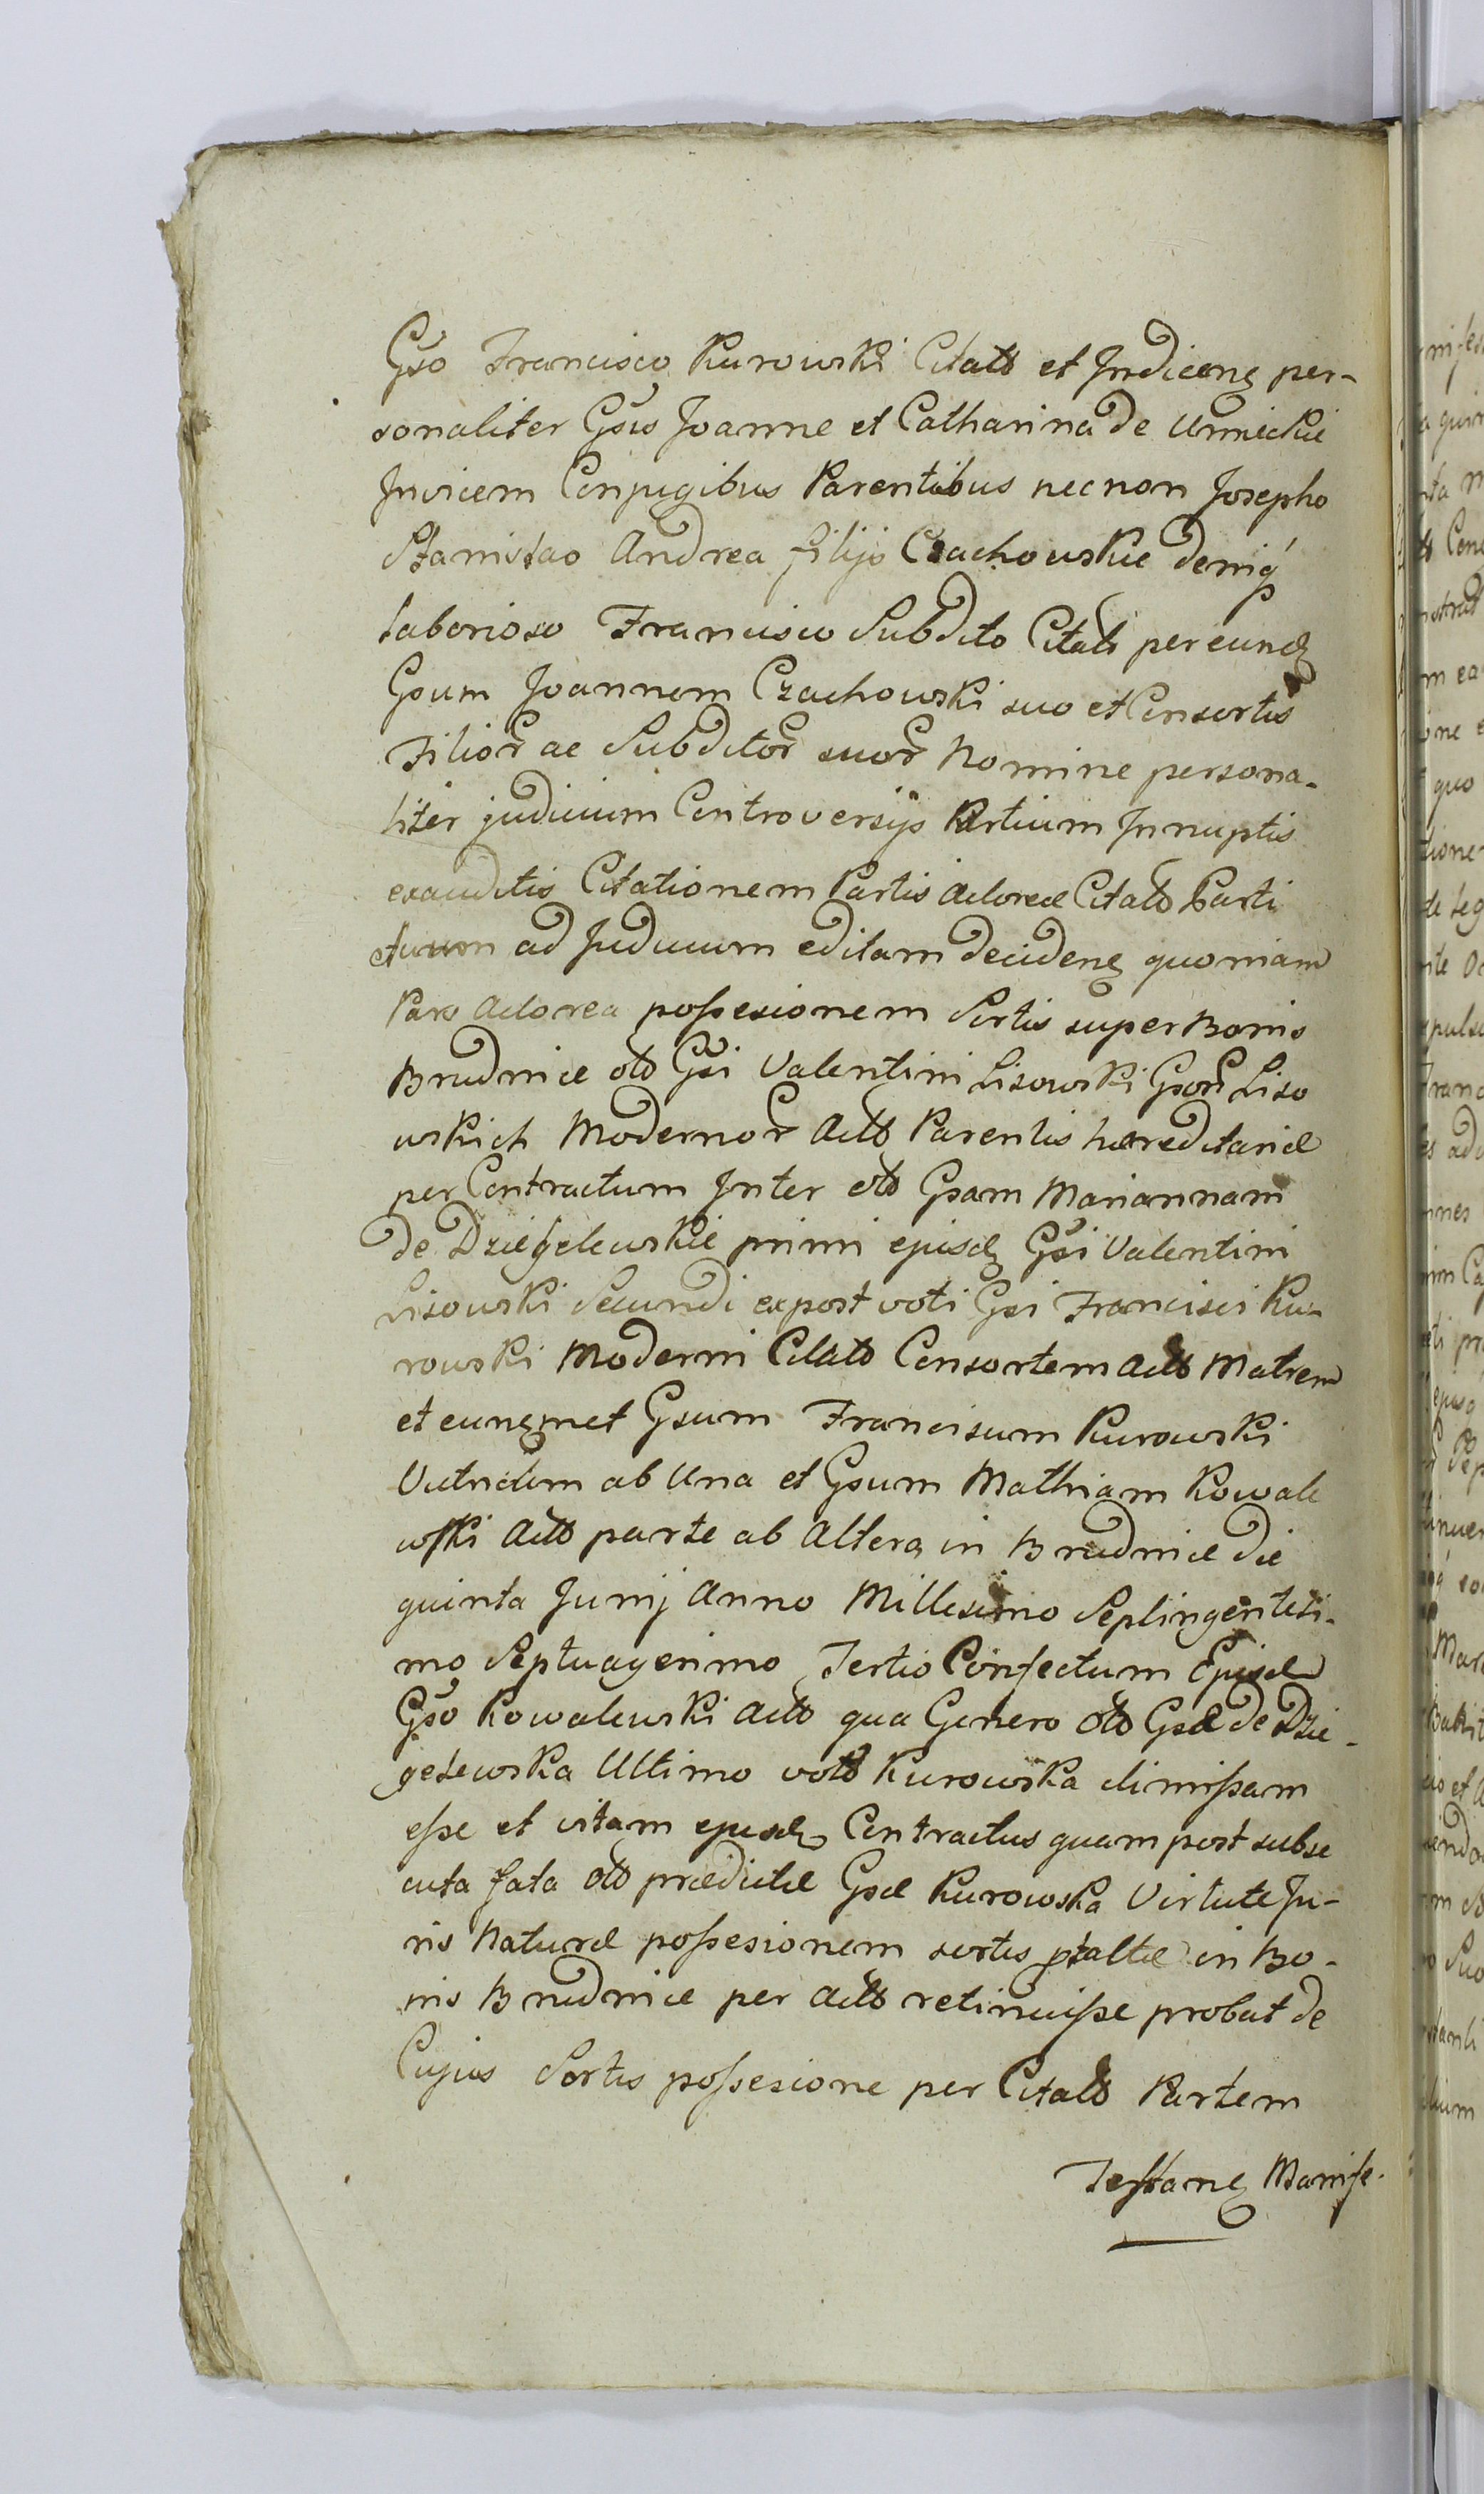 Gso Francisco Kurowski Citato et Judicenẹ per-
sonaliter Gsis Joanne et Catharina de Umieckie
Jnvicem Conjugibus Parentibus nec non Josepho
Stanislao Andrea filijs Czachowskie deniq̃
laborioso Francisco Subdito Citatis per eund
Gsum Joannem Czachowski suo et Consortis
Filior ac Subditor suor Nomine persona-
liter judicium Controversijs Partium Jnnuptis
exauditis Citationem Partis Actoreæ Citato Parti
ad Judicium editam decidenẹ quoniam
Pars Actorea possesionem Sortis super Bonis
Brudnice olo Gsi Valentini Lisowski Gsor Liso
wskich Modernor Acto Parentis hæreditariæ
per Contractum Jnter olo Gsam Mariannam
de Dzięgelewskie primi ejusd Gsi Valentini
Lisowski Secundi expost voti Gsi Francisci Ku-
rowski Moderni Citato Consortem Acto Matrem
et eunẹmet Gsum Franciscum Kurowski
Vitricum ab Una et Gsum Mathiam Kowale
wski Acto parte ab Altera in Brudnice die
quinta Junij Anno Millesimo Septingentesi-
mo Septuagesimo Tertio Confectum Ejusd
Gso Kowalewski Acto qua Genero olo Gsæ de Dzie-
gelewska Ultimo voto Kurowska dimissam
esse et vitam ejusd Contractus quam post subse
cuta fata olo prædictæ Gsæ Kurowska Virtute Ju-
ris Naturæ possesionem sortis ptaltæ in Bo-
nis Brudnice per Acto retinuisse probat de
Cujus Sortis possesione per Citato Partem
Testanẹ Manife.